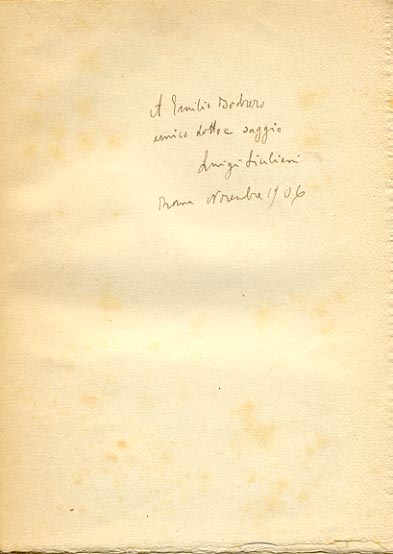 A Emilio Bodrero
amico dotto e saggio
Luigi Siciliani
Roma Novembre 1906